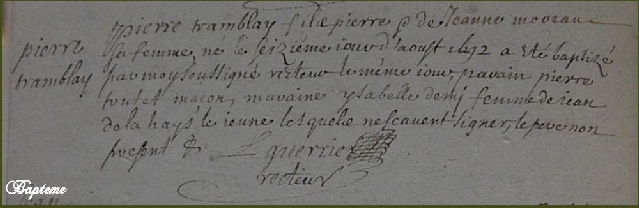 pierre tramblay fils de pierre & de Jeanne moreau
pierre
tramblay
sa femme né le seiziéme jour d'aoust 1692 a été baptizé
par moy soussigné recteur le même jour, parain pierre
macon, maraine ysabelle demi femme de jean
de la hays le jeune lesquels ne scavent signer, le pere non
present & L guerrier
recteur
Bapteme